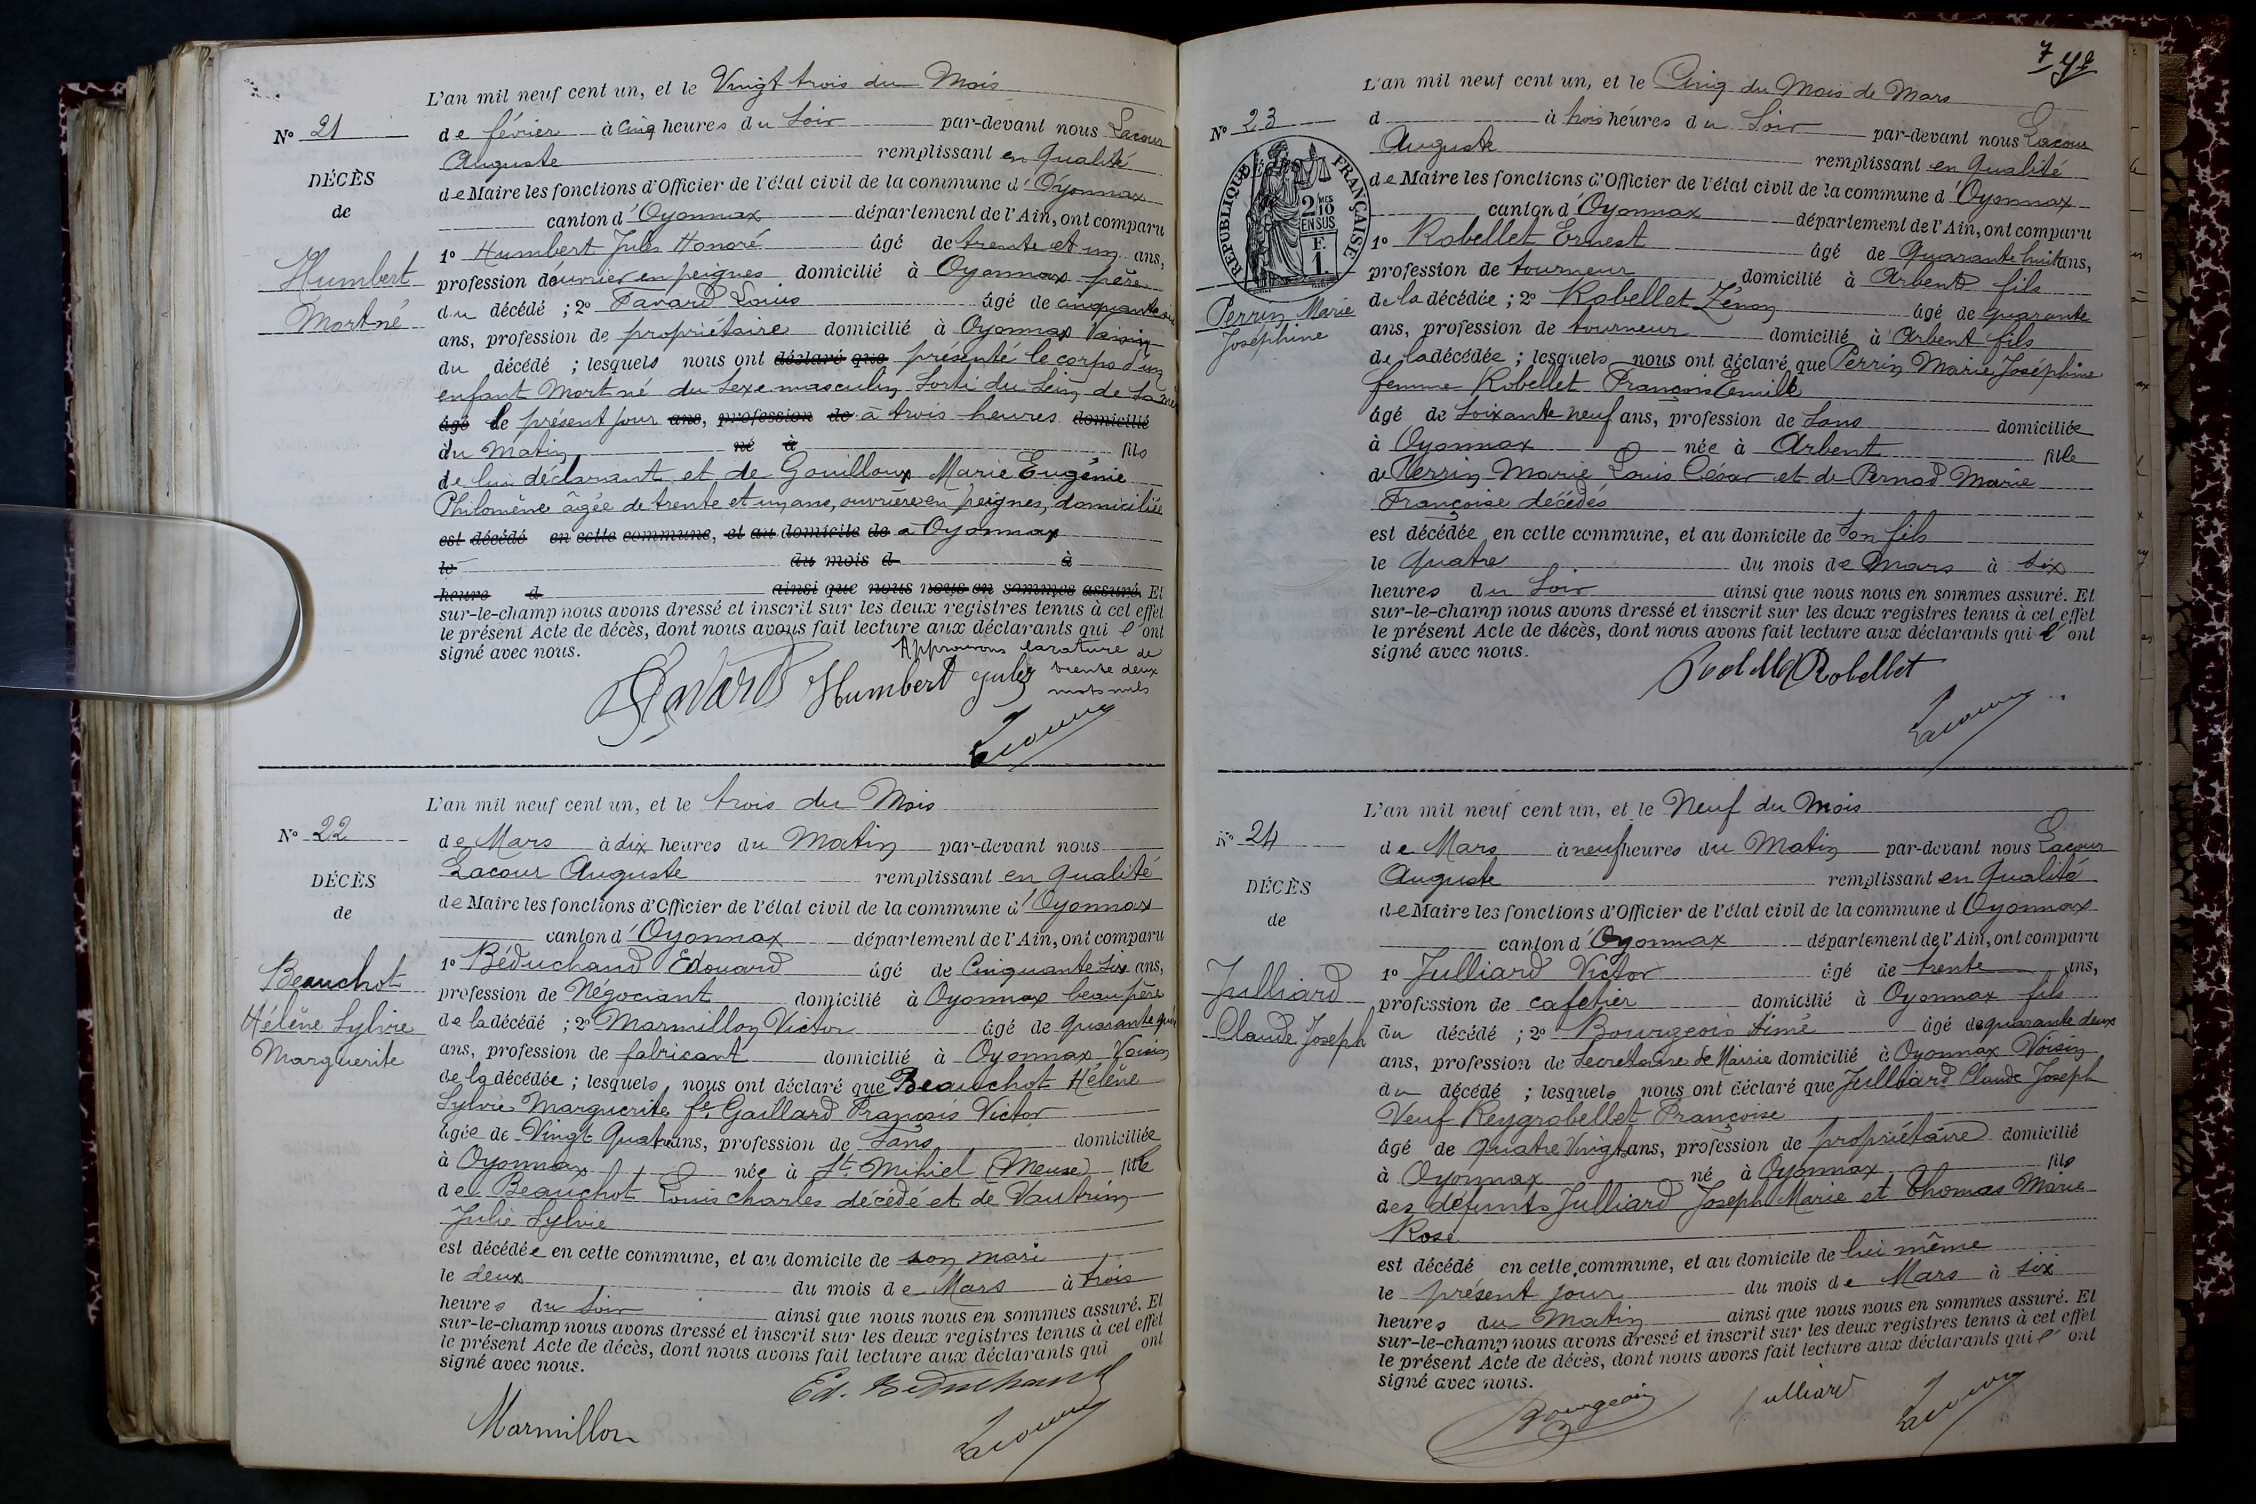 L'an mil neuf cent un, et le Vingt trois du Mois
N° 21
de février à Cinq heures du Soir par-devant nous Lacour
Auguste remplissant en qualité
DÉCÈS
de Maire les fonctions d'Officier de l'état civil de la commune d'Oyonnax
de
canton d'Oyonnax département de l'Ain, ont comparu
1° Humbert Jules Honoré âgé de trente et un ans,
Humbert
profession d'ouvrier en peignes domicilié à Oyonnax père
Mort né
du décédé ; 2° Savard Louis âgé de cinquante six
ans, profession de propriétaire domicilié à Oyonnax Voisin
du décédé ; lesquels nous ont déclaré que présenté le corps d'un
enfant Mort né du Sexe masculin Sorti du Sein de Sa mère
âgé le présent jour ans, profession de à trois heures domicilié
du Matin né à fils
de lui déclarant et de Gouilloux Marie Eugénie
Philomène âgée de trente et un ans, ouvrière en peignes, domiciliée
est décédé en cette commune, et au domicile de à Oyonnax
le du mois d à
heure d ainsi que nous nous en sommes assuré. Et
sur-le-champ nous avons dressé et inscrit sur les deux registres tenus à cet effet
le présent Acte de décès, dont nous avons fait lecture aux déclarants qui l'ont
signé avec nous.
Approuvons la rature de
trente deux
mots nuls
Savard Humbert Jules
Lacour
L'an mil neuf cent un, et le trois du Mois
N° 22
de Mars à dix heures du Matin par-devant nous
Lacour Auguste remplissant en qualité
DÉCÈS
de Maire les fonctions d'Officier de l'état civil de la commune d'Oyonnax
de
canton d'Oyonnax département de l'Ain, ont comparu
1° Béduchaud Edouard âgé de Cinquante Six ans,
Beauchot
profession de Négociant domicilié à Oyonnax beau père
Hélène Sylvie
de la décédé ; 2° Marmillon Victor âgé de quarante quatre
Marguerite
ans, profession de fabricant domicilié à Oyonnax Voisin
de la décédée ; lesquels nous ont déclaré que Beauchot Hélène
Sylvie Marguerite fe Gaillard François Victor
âgée de Vingt Quatre ans, profession de Sans domiciliée
à Oyonnax née à St Mihiel (Meuse) fille
de Beauchot Louis Charles décédé et de Vautrin
Julie Sylvie
est décédée en cette commune, et au domicile de son mari
le deux du mois de Mars à trois
heures du Soir ainsi que nous nous en sommes assuré. Et
sur-le-champ nous avons dressé et inscrit sur les deux registres tenus à cet effet
le présent Acte de décès, dont nous avons fait lecture aux déclarants qui ont
signé avec nous.
Ed. Béduchaud
Marmillon
Lacour
7
L'an mil neuf cent un, et le Cinq du Mois de Mars
N° 23
d à trois heures du Soir par-devant nous Lacour
Auguste remplissant en qualité
de Maire les fonctions d'Officier de l'état civil de la commune d'Oyonnax
RÉPUBLIQUE FRANÇAISE
2/10 MES
EN SUS
F.
1.
canton d'Oyonnax département de l'Ain, ont comparu
1° Robellet Ernest âgé de Quarante huit ans,
profession de tourneur domicilié à Arbent fils
Perrin Marie
Joséphine
de la décédée ; 2° Robellet Zénon âgé de quarante
ans, profession de tourneur domicilié à Arbent fils
de la décédée ; lesquels nous ont déclaré que Perrin Marie Joséphine
femme Robellet François Emile
âgé de Soixante neuf ans, profession de Sans domiciliée
à Oyonnax née à Arbent fille
de Perrin Marie Louis César et de Pernod Marie
Françoise décédés
est décédée en cette commune, et au domicile de Son fils
le quatre du mois de Mars à six
heures du Soir ainsi que nous nous en sommes assuré. Et
sur-le-champ nous avons dressé et inscrit sur les deux registres tenus à cet effet
le présent Acte de décès, dont nous avons fait lecture aux déclarants qui l'ont
signé avec nous.
Robellet Robellet
Lacour
L'an mil neuf cent un, et le Neuf du Mois
N° 24
de Mars à neuf heures du Matin par-devant nous Lacour
Auguste remplissant en qualité
DÉCÈS
de Maire les fonctions d'Officier de l'état civil de la commune d Oyonnax
de
canton d'Oyonnax département de l'Ain, ont comparu
1° Julliard Victor âgé de trente ans,
Julliard
profession de cafetier domicilié à Oyonnax fils
Claude Joseph
du décédé ; 2° Bourgeois Aimé âgé de quarante deux
ans, profession de Secrétaire de Mairie domicilié à Oyonnax Voisin
du décédé ; lesquels nous ont déclaré que Julliard Claude Joseph
Veuf Reygrobellet Françoise
âgé de quatre Vingts ans, profession de propriétaire domicilié
à Oyonnax né à Oyonnax fils
des défunts Julliard Joseph Marie et Thomas Marie
Rose
est décédé en cette commune, et au domicile de lui même
le présent jour du mois de Mars à six
heures du Matin ainsi que nous nous en sommes assuré. Et
sur-le-champ nous avons dressé et inscrit sur les deux registres tenus à cet effet
le présent Acte de décès, dont nous avons fait lecture aux déclarants qui l'ont
signé avec nous.
Bourgeois Julliard Lacour